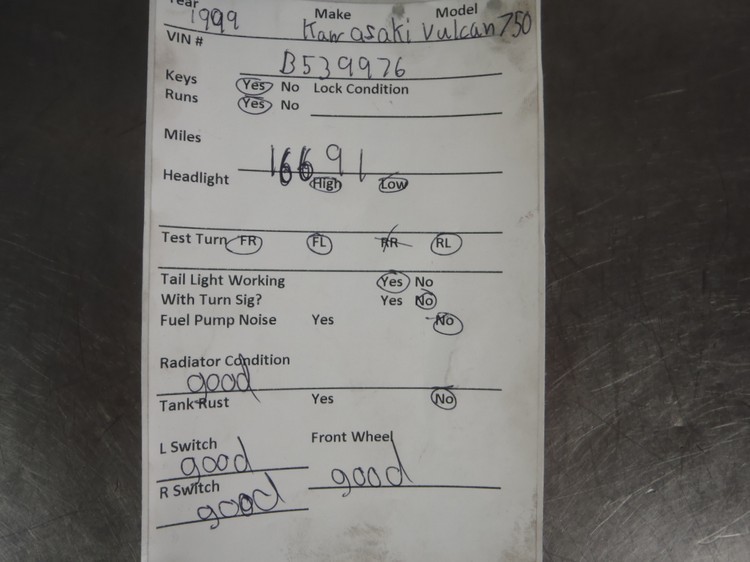 Year 1999 Make Kawasaki Model Vulcan 750
VIN # B539976
Keys Yes No Lock Condition
Runs Yes No
Miles 16691
Headlight High Low
Test Turn FR FL RR RL
Tail Light Working Yes No
With Turn Sig? Yes No
Fuel Pump Noise Yes No
Radiator Condition
good
Tank Rust Yes No
L Switch good Front Wheel good
R Switch good